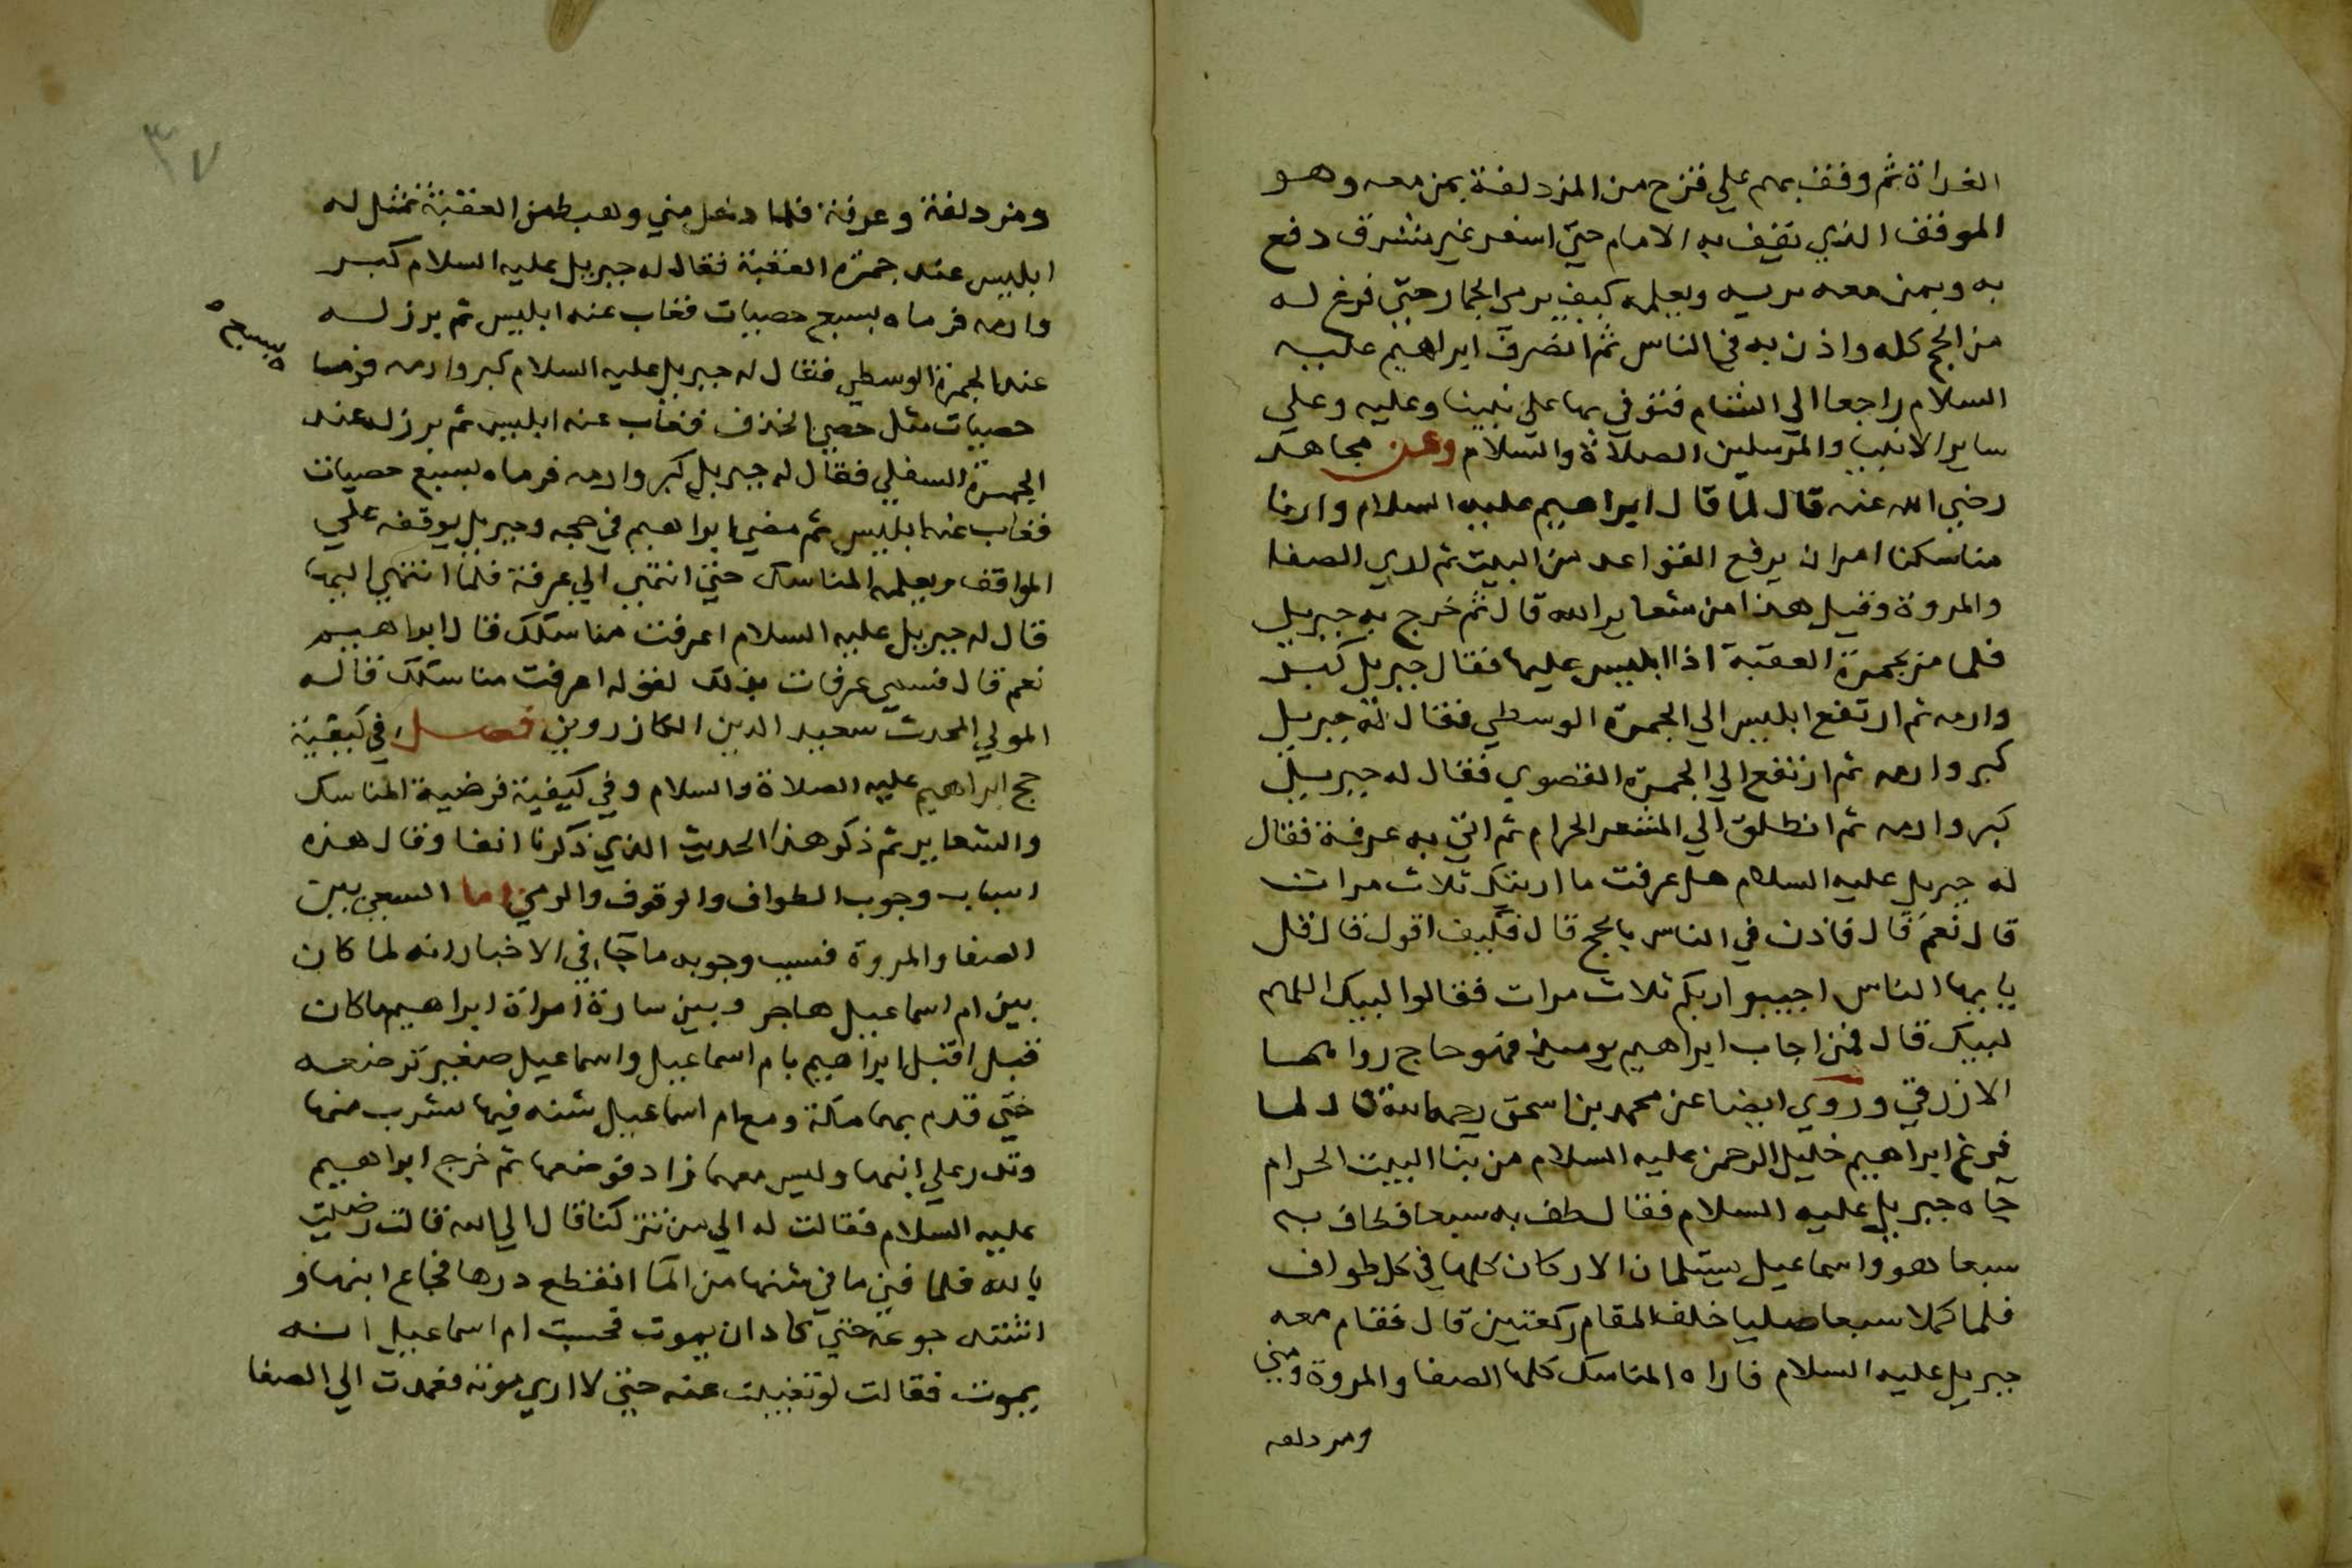 الغداة ثم وقف بهم علي قزح من المزدلفة بمن معه وهو
الموقف الذي يقف به الامام حتي اسفر غير مشرق دفع
به وبمن معه يريه ويعلمه كيف يرمي الجمار حتي فرغ له
من الحج كله واذن به في الناس ثم انصرف ابراهيم عليه
السلام راجعا الي الشام فتوفي بها علي نبينا وعليه وعلي
ساير الانبيا والمرسلين الصلاة والسلام وعن مجاهد
رضي الله عنه قال لما قال ابراهيم عليه السلام وارنا
مناسكنا امر ان يرفع القواعد من البيت ثم اري الصفا
والمروة وقيل هذا من شعاير الله قال ثم خرج به جبريل
فلما مر بجمرة العقبة اذا ابليس عليها فقال جبريل كبر
وارمه ثم ارتفع ابليس الي الجمرة الوسطي فقال له جبريل
كبر وارمه ثم ارتفع الي الجمرة القصوي فقال له جبريل
كبر وارمه ثم انطلق الي المشعر الحرام ثم اتي به عرفة فقال
له جبريل عليه السلام هل عرفت ما اريتك ثلاث مرات
قال نعم قال فاذن في الناس بالحج قال فكيف اقول قال قل
يا ايها الناس اجيبوا ربكم ثلاث مرات فقالوا لبيك اللهم
لبيك قال فمن اجاب ابراهيم يوميذ فهو حاج رواهما
الازرقي وروي ايضا عن محمد بن اسحق رحمه الله قال لما
فرغ ابراهيم خليل الرحمن عليه السلام من بنا البيت الحرام
جاه جبريل عليه السلام فقال طف به سبعا فطاف به
سبعا هو واسماعيل يستلمان الاركان كلها في كل طواف
فلما كملا سبعا صليا خلف المقام ركعتين قال فقام معه
جبريل عليه السلام فاراه المناسك كلها الصفا والمروة ومني
ومزدلفه
٣٧
ومزدلفة وعرفة فلما دخل مني وهبط من العقبة تمثل له
ابليس عند جمرة العقبة فقال له جبريل عليه السلام كبر
وارمه فرماه بسبع حصيات فغاب عنه ابليس ثم برز له
عند الجمرة الوسطي فقال له جبريل عليه السلام كبر وارمه فرما
ه بسبع ه
حصيات مثل حصي الخذف فغاب عنه ابليس ثم برز له عند
الجمرة السفلي فقال له جبريل كبر وارمه فرماه بسبع حصيات
فغاب عنه ابليس ثم مضي ابراهيم في حجه وجبريل يوقفه علي
المواقف ويعلمه المناسك حتي انتهي الي عرفة فلما انتهي اليها
قال له جبريل عليه السلام اعرفت مناسكك قال ابراهيم
نعم قال فسمي عرفات بذلك لقوله اعرفت مناسكك قاله
المولي المحدث سعيد الدين الكازروني فصل في كيفية
حج ابراهيم عليه الصلاة والسلام وفي كيفية فرضية المناسك
والشعاير ثم ذكر هذا الحديث الذي ذكرنا انفا وقال هذه
اسباب وجوب الطواف والوقوف والرمي اما السعي بين
الصفا والمروة فسبب وجوبه ما جا في الاخبار انه لما كان
بين ام اسماعيل هاجر وبين سارة امراة ابراهيم ما كان
قبل اقبل ابراهيم بام اسماعيل واسماعيل صغير ترضعه
حتي قدم بهما مكة ومع ام اسماعيل شنه فيها تشرب منها
وتدر علي ابنها وليس معها زاد فوضعها ثم خرج ابراهيم
عليه السلام فقالت له الي من تتركنا قال الي الله قالت رضيت
بالله فلما فني ما في شنها من الما انقطع درها فجاع ابنها و
اشتد جوعه حتي كاد ان يموت فحسبت ام اسماعيل انه
يموت فقالت لو تغيبت عنه حتي لا اري موته فعمدت الي الصفا